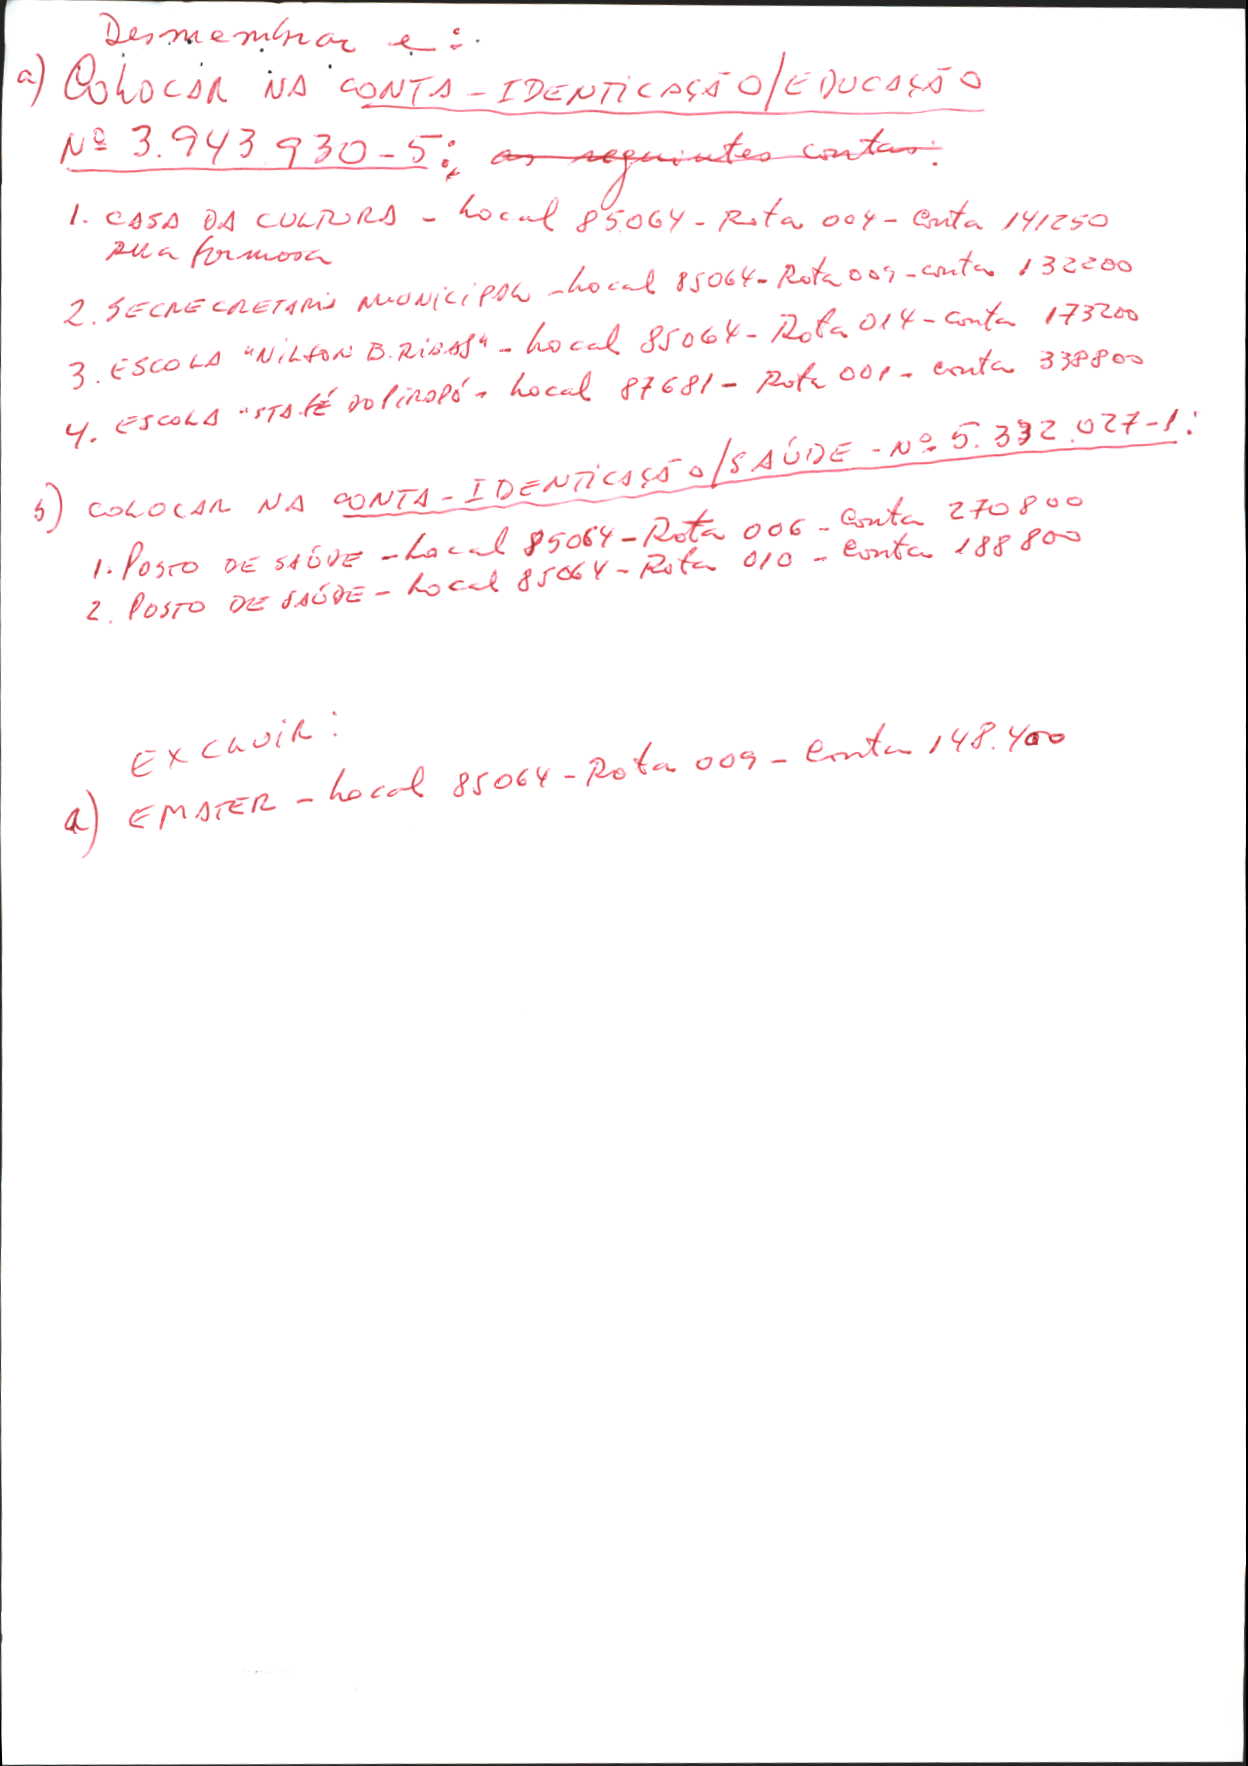 Desmembrar e:
a) COLOCAR NA CONTA - IDENTICAÇÃO/EDUCAÇÃO
Nº 3.943.930-5: as seguintes contas:
1. CASA DA CULTURA - Local 85064 - Rota 004 - Conta 141250
Rua formosa
2. SECRECRETARIA MUNICIPAL - Local 85064 - Rota 009 - conta 132200
3. ESCOLA "NILSON B. RIBAS" - Local 85064 - Rota 014 - conta 173200
4. ESCOLA "STA FÉ DO PIRAPÓ" - Local 87681 - Rota 001 - conta 338800
b) COLOCAR NA CONTA - IDENTICAÇÃO/SAÚDE - Nº 5.332.027-1:
1. POSTO DE SAÚDE - Local 85064 - Rota 006 - Conta 270800
2. POSTO DE SAÚDE - Local 85064 - Rota 010 - Conta 188800
EXCLUIR:
a) EMATER - Local 85064 - Rota 009 - Conta 148.400